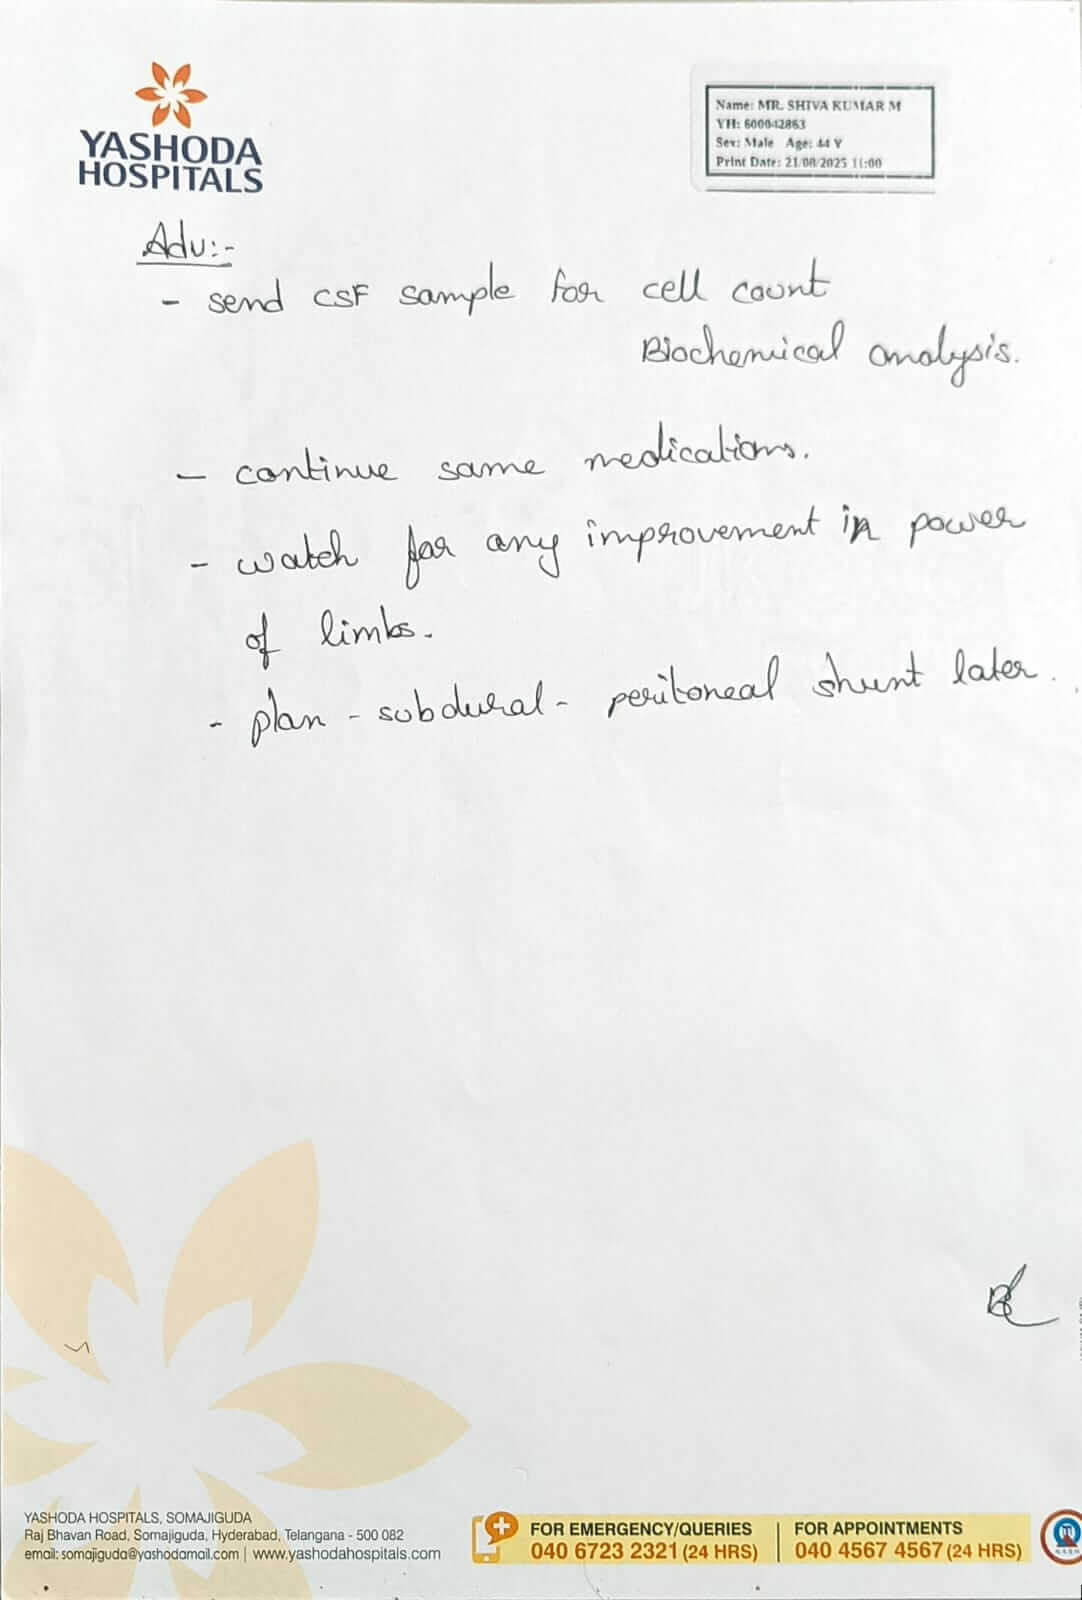 YASHODA
HOSPITALS
Name: MR. SHIVA KUMAR M
YH: 600042863
Sex: Male Age: 44 Y
Print Date: 21/08/2025 11:00
Adv:-
- send CSF sample for cell count
Biochemical analysis.
- continue same medications.
- watch for any improvement in power
of limbs.
- plan - subdural - peritoneal shunt later.
YASHODA HOSPITALS, SOMAJIGUDA
Raj Bhavan Road, Somajiguda, Hyderabad, Telangana - 500 082
email: somajiguda@yashodamail.com | www.yashodahospitals.com
FOR EMERGENCY/QUERIES
040 6723 2321 (24 HRS)
FOR APPOINTMENTS
040 4567 4567 (24 HRS)